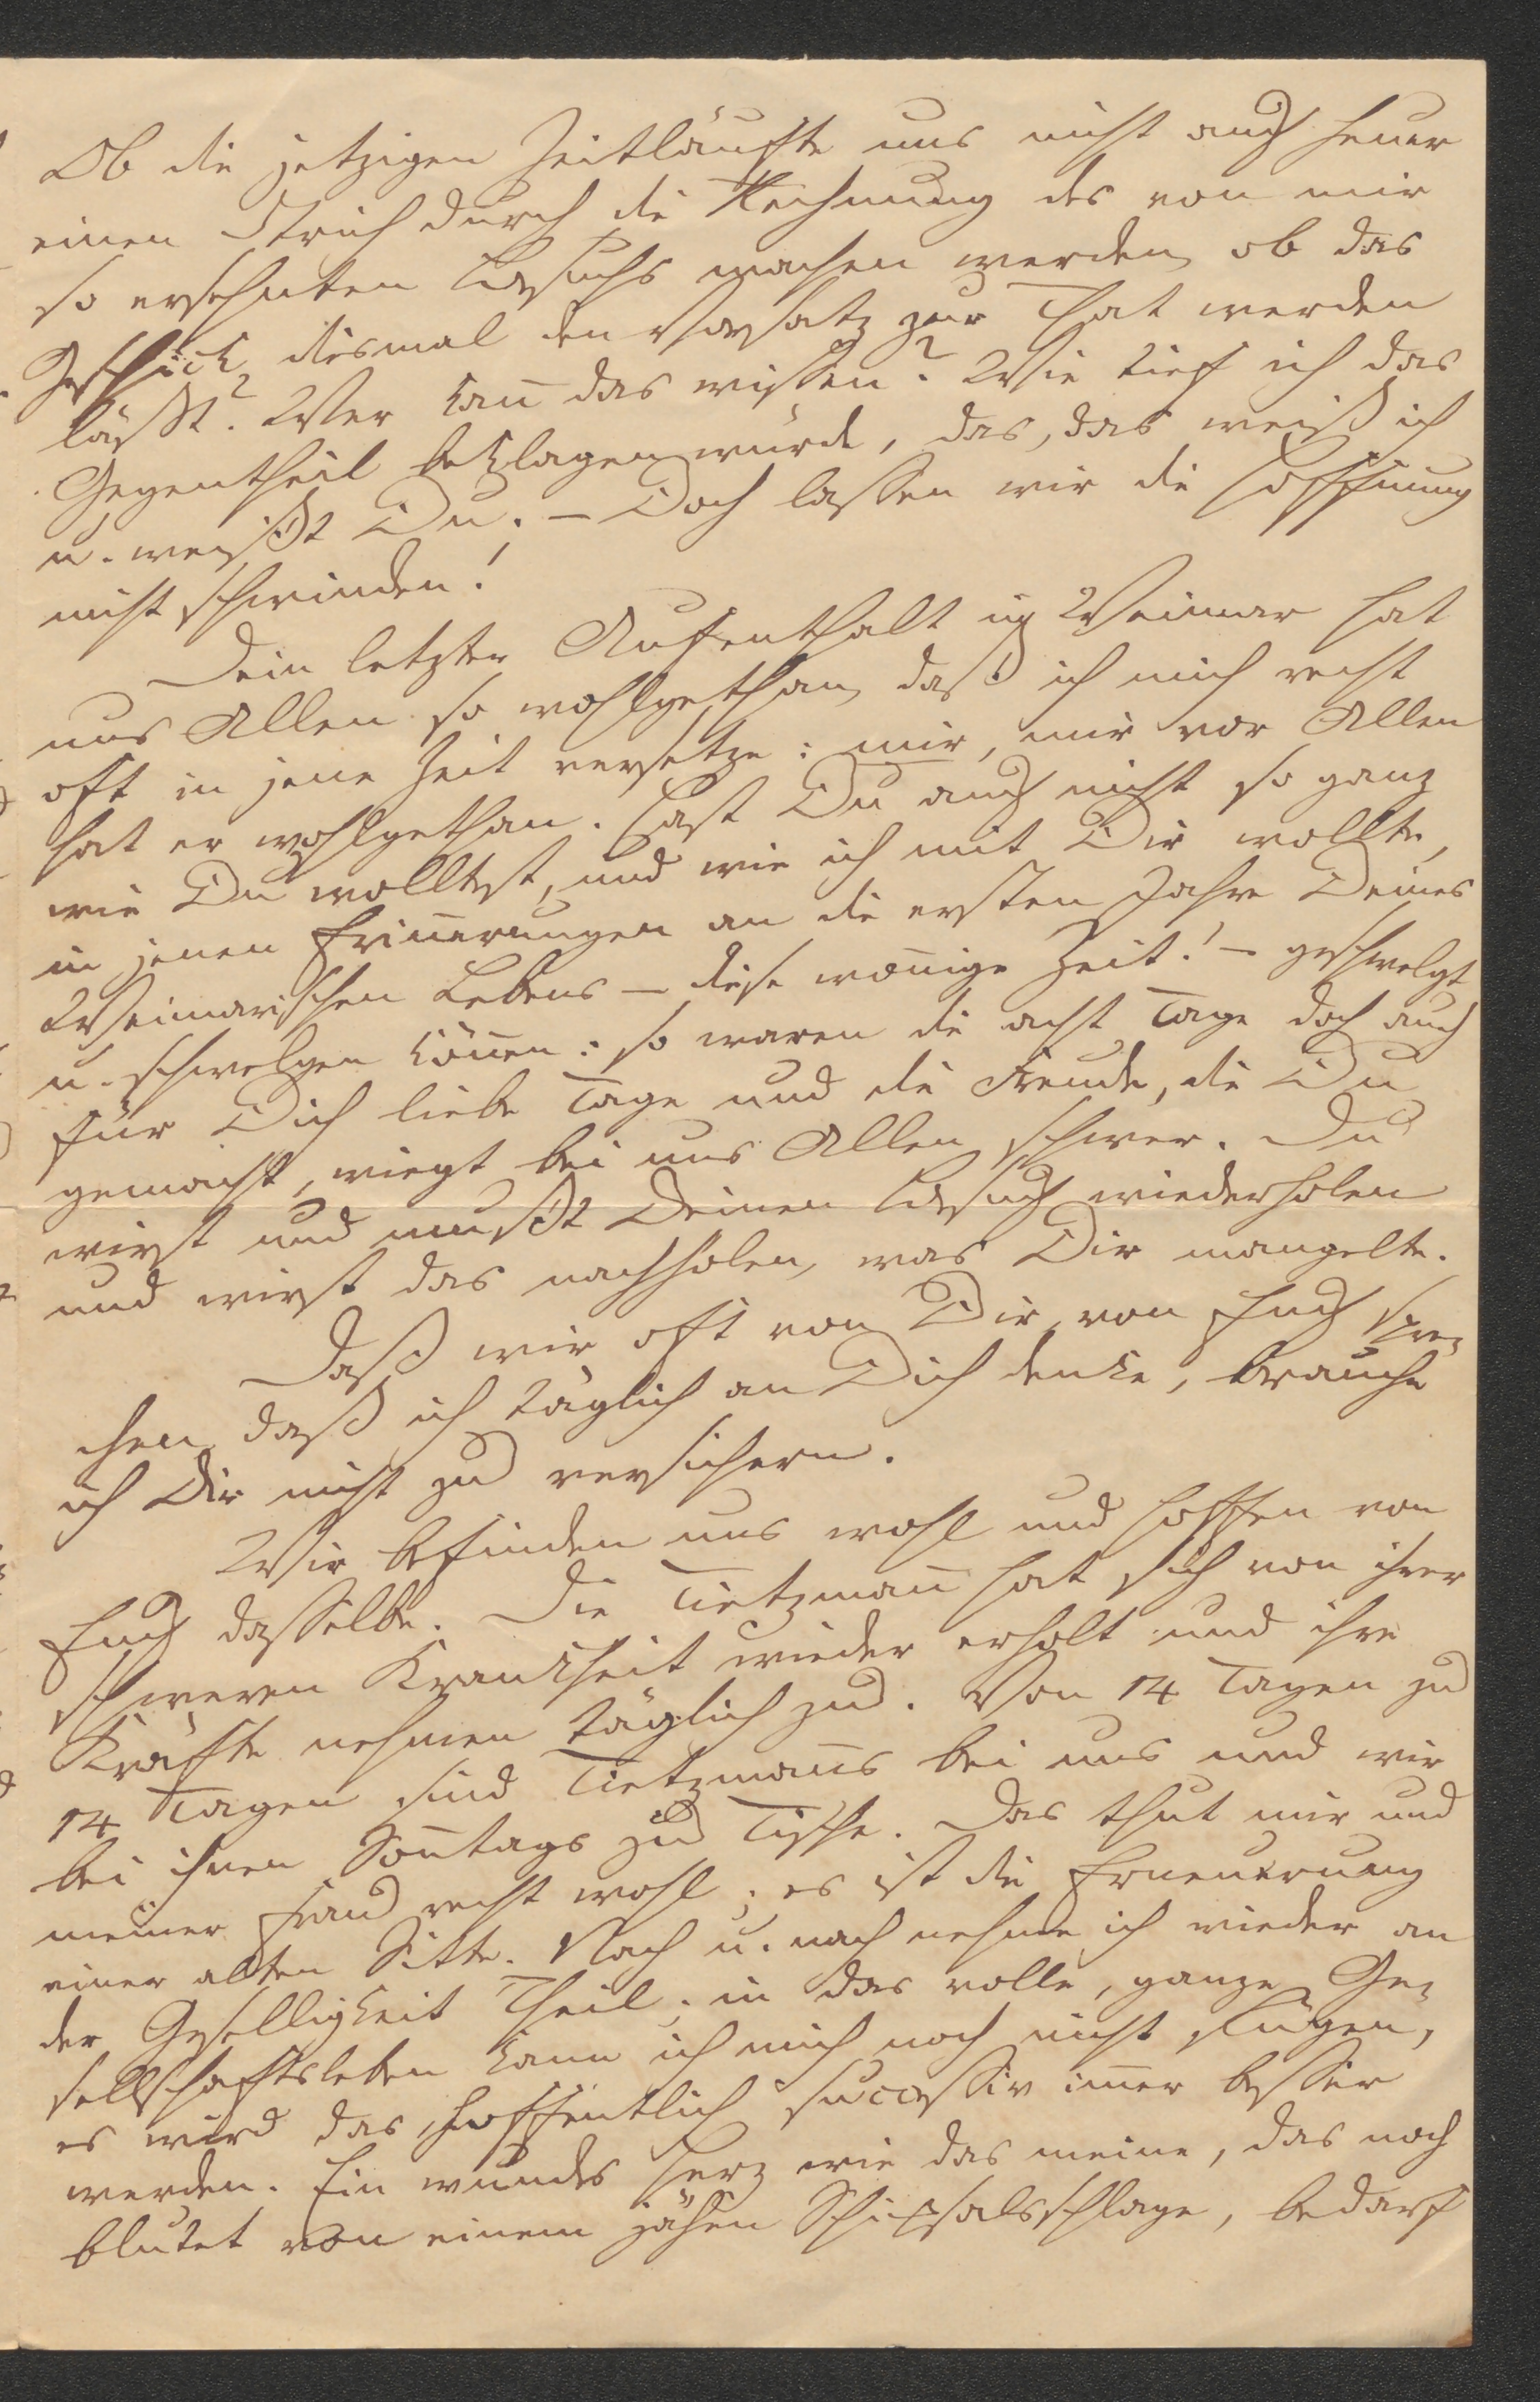 Ob die jetzigen Zeitläufte uns nicht auch heuer
einen Strich durch die Rechnung des von mir
so ersehnten Besuchs machen werden, ob das
Geschick diesmal den Vorsatz zur That werden
läßt? Wer kan̄ das wissen? Wie tief ich das
Gegentheil beklagen würde, das, das weiß ich
u. weißt Du. – Doch lassen wir die Hoffnung
nicht schwinden!
Dein letzter Aufenthalt in Weimar hat
uns Allen so wohlgethan, daß ich mich recht
oft in jene Zeit versetze: mir, mir vor Allen
hat er wohlgethan. Hast Du auch nicht so ganz
wie Du wolltest, und wie ich mit Dir wollte,
in jenen Erin̄erungen an die ersten Jahre Deines
Weimarischen Lebens – diese won̄ige Zeit! – geschwelgt
u. schwelgen kön̄en: so waren die acht Tage doch auch
für Dich liebe Tage und die Freude, die Du
gemacht, wiegt bei uns Allen schwer. Du
wirst und mußt Deinen Besuch wiederholen
und wirst das nachholen, was Dir mangelte.
Daß wir oft von Dir, von Euch spre-
chen, daß ich täglich an Dich denke, brauche
ich Dir nicht zu versichern.
Wir befinden uns wohl und hoffen von
Euch dasselbe. Die Tietzman̄ hat sich von ihrer
schweren Krankheit wieder erholt und ihre
Kräfte nehmen täglich zu. Von 14 Tagen zu
14 Tagen sind Tietzman̄s bei uns und wir
bei ihnen Son̄tags zu Tische. Das thut mir und
meiner Frau recht wohl; es ist die Erneuerung
einer alten Sitte. Nach u. nach nehme ich wieder an
der Geselligkeit Theil; in das volle, ganze Ge-
sellschaftsleben kann ich mich noch nicht fügen,
es wird das hoffentlich successiv im̄er besser
werden. Ein wundes Herz wie das meine, das noch
blutet von einem jähen Schicksalsschlage, bedarf